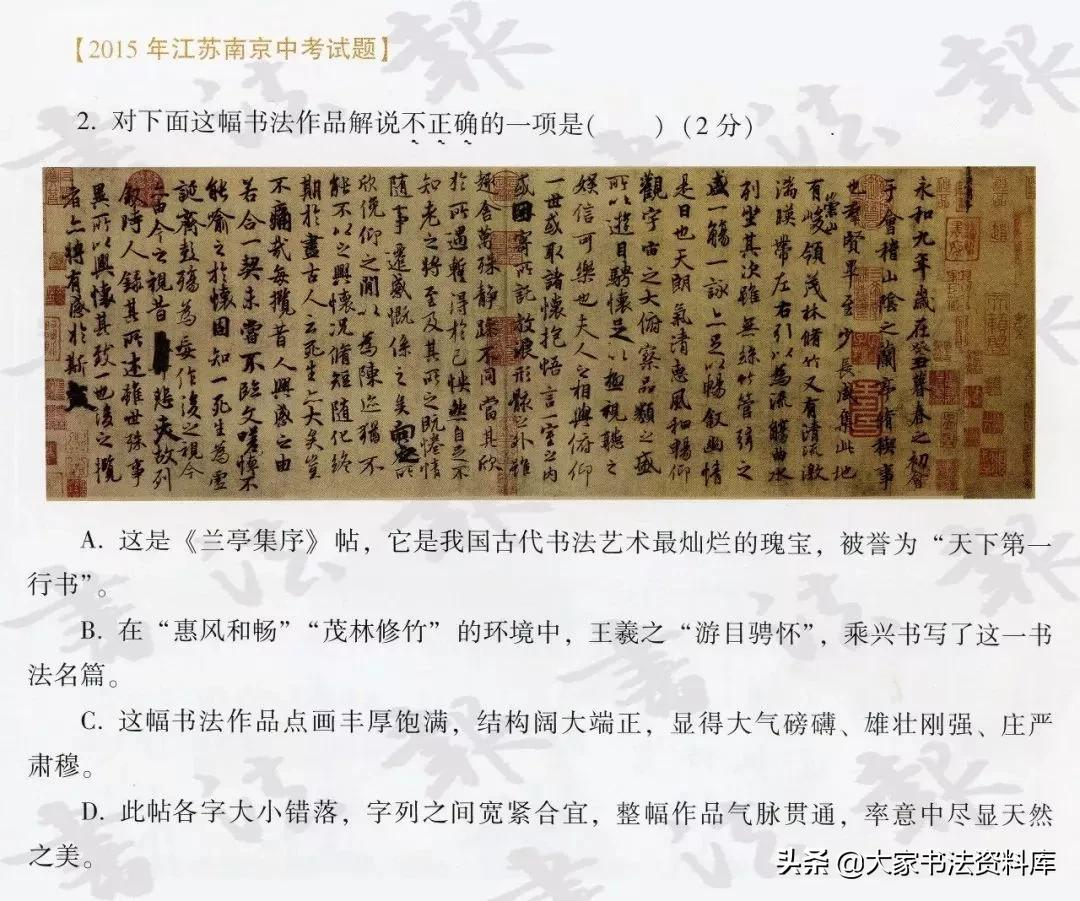 【2015 年江苏南京中考试题】
2. 对下面这幅书法作品解说不正确的一项是(　　)(2 分)
永和九年歲在癸丑暮春之初會
于會稽山陰之蘭亭脩稧事
也羣賢畢至少長咸集此地
有崇山峻領茂林脩竹又有清流激
湍暎帶左右引以為流觴曲水
列坐其次雖無絲竹管弦之
盛一觴一詠亦足以暢敘幽情
是日也天朗氣清惠風和暢仰
觀宇宙之大俯察品類之盛
所以遊目騁懷足以極視聽之
娛信可樂也夫人之相與俯仰
一世或取諸懷抱悟言一室之內
或因寄所託放浪形骸之外雖
趣舍萬殊靜躁不同當其欣
於所遇蹔得於己怏然自足不
知老之將至及其所之既惓情
隨事遷感慨係之矣向之所
欣俛仰之閒以為陳迹猶不
能不以之興懷況脩短隨化終
期於盡古人云死生亦大矣豈
不痛哉每攬昔人興感之由
若合一契未嘗不臨文嗟悼不
能喻之於懷固知一死生為虛
誕齊彭殤為妄作後之視今
亦由今之視昔悲夫故列
敘時人錄其所述雖世殊事
異所以興懷其致一也後之攬
者亦將有感於斯文
A. 这是《兰亭集序》帖，它是我国古代书法艺术最灿烂的瑰宝，被誉为“天下第一
行书”。
B. 在“惠风和畅”“茂林修竹”的环境中，王羲之“游目骋怀”，乘兴书写了这一书
法名篇。
C. 这幅书法作品点画丰厚饱满，结构阔大端正，显得大气磅礴、雄壮刚强、庄严
肃穆。
D. 此帖各字大小错落，字列之间宽紧合宜，整幅作品气脉贯通，率意中尽显天然
之美。
書法報
头条 @大家书法资料库